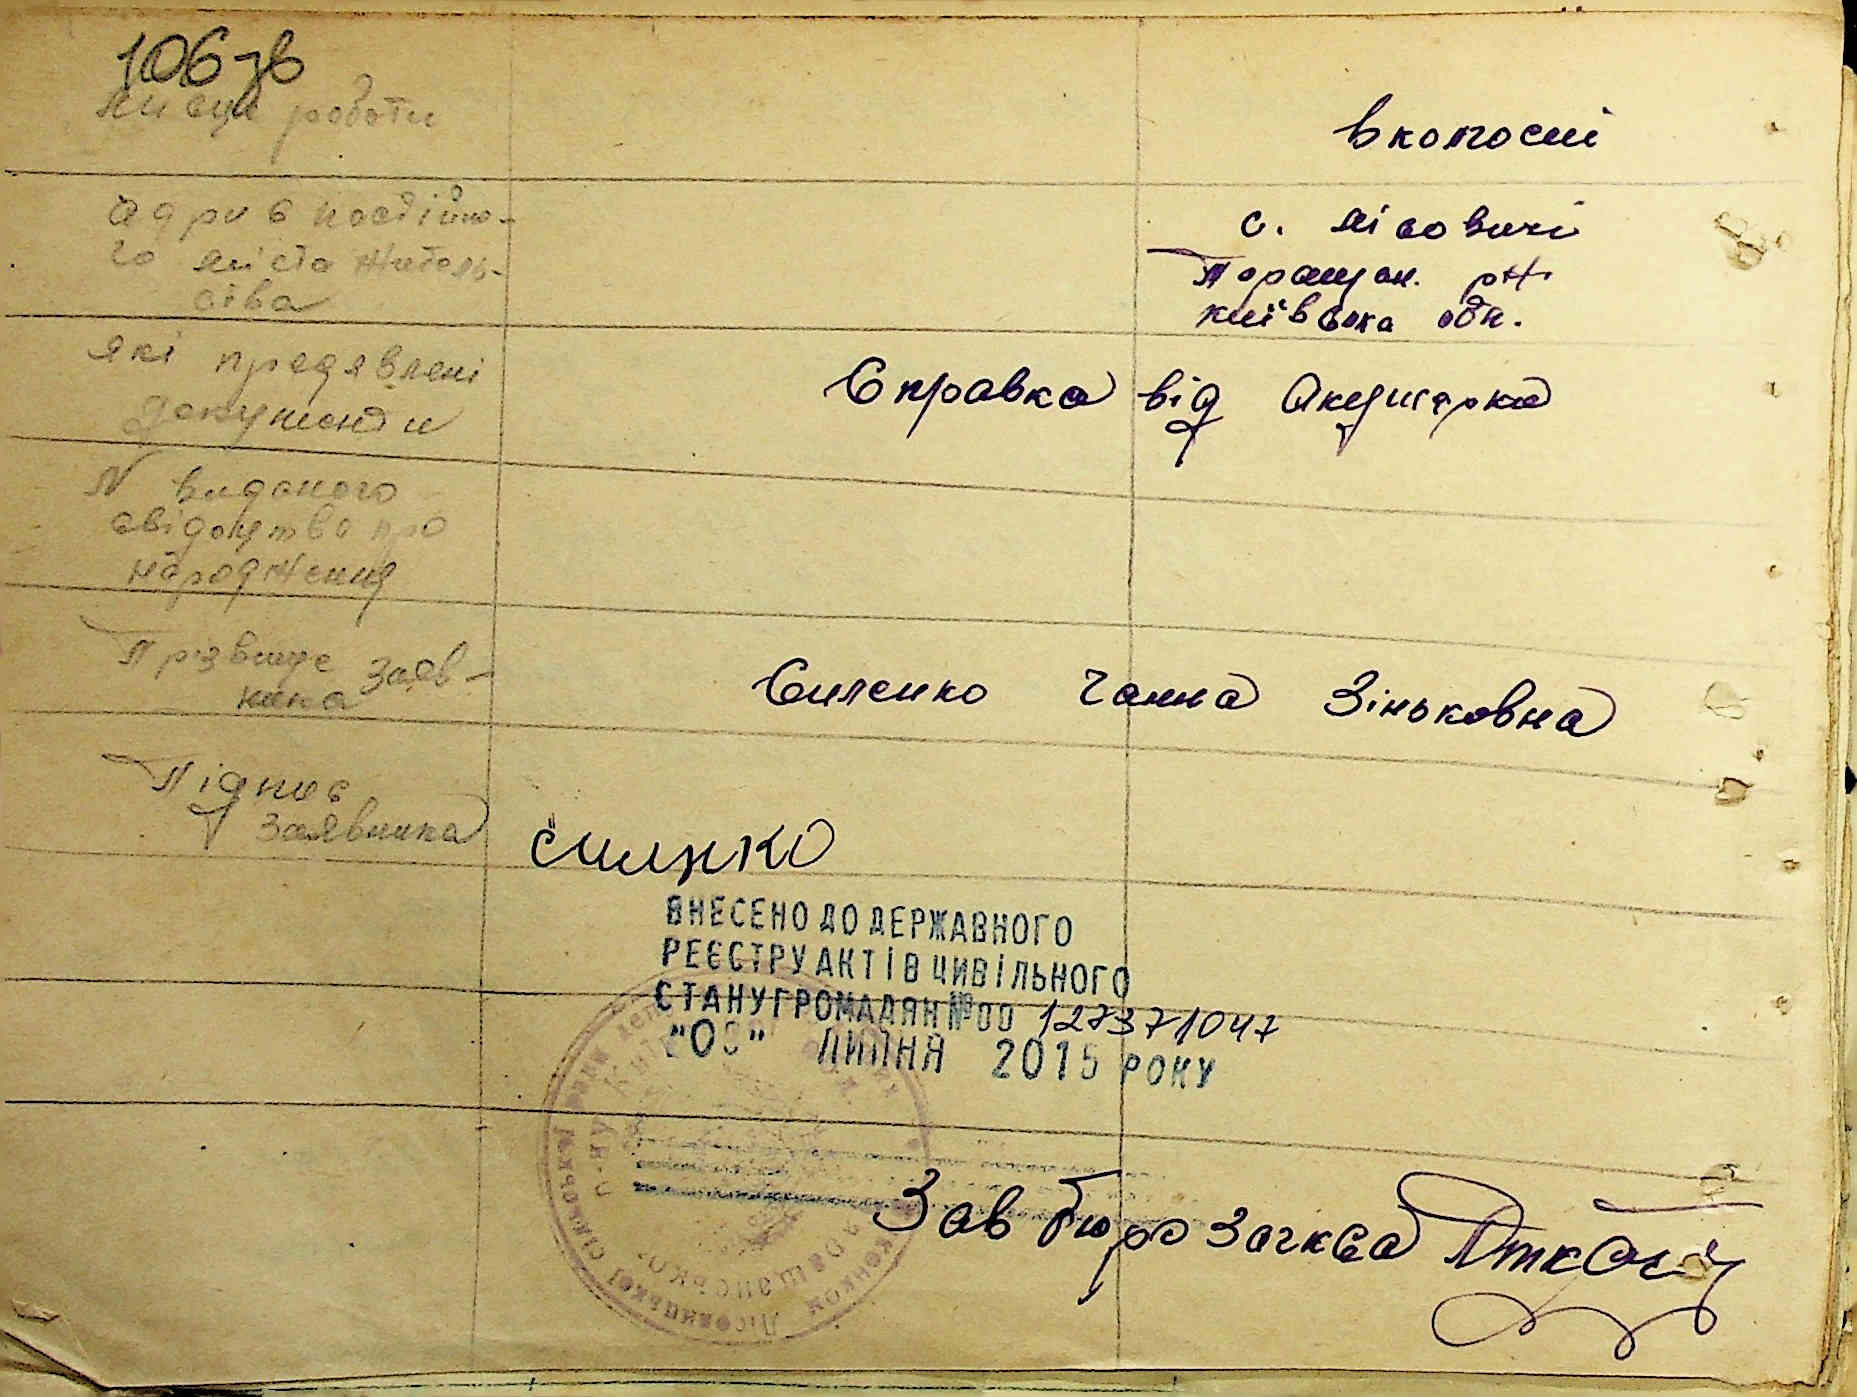 106 зв
Місце роботи
в колгоспі
Адрис постійно-
го місто житель-
ства
с. Лісовичі
Таращан. р-н.
київська обл.
які предявлені
документи
Справка від Акушерка
N виданого
свідоцтва про
народження
Прізвище заяв-
ника
Силенко Ганна Зіньковна
Підпис
заявника
силнко
ВНЕСЕНО ДО ДЕРЖАВНОГО
РЕЄСТРУ АКТІВ ЦИВІЛЬНОГО
СТАНУ ГРОМАДЯН №00 127371047
ЛИПНЯ 2015 РОКУ
Лісовицької сільської ради
Зав бюро Загкса